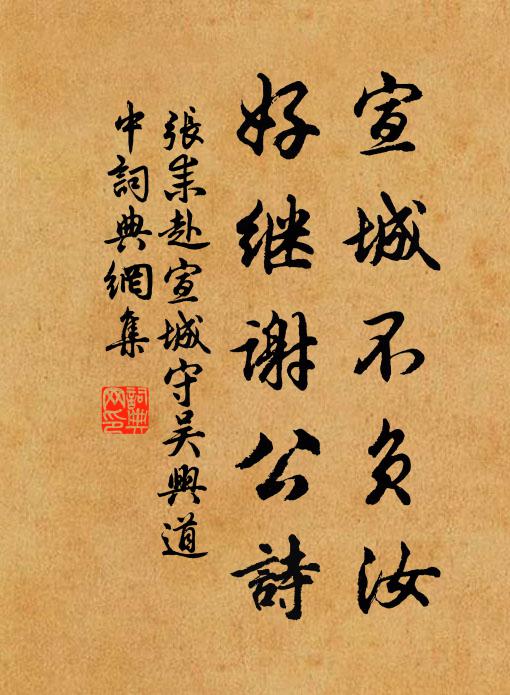 宣城不负汝
好继谢公詩
張耒赴宣城守吴興道
中詞典網集
詞典
网印